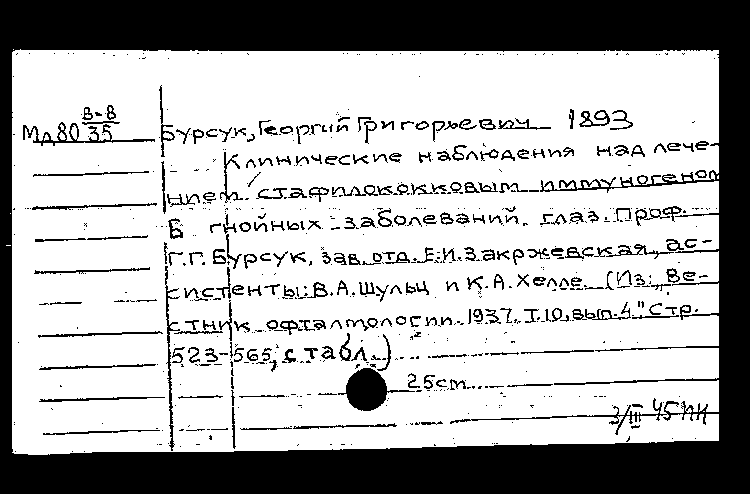 В-8
Мд80 35
Бурсук, Георгий Григорьевич 1893
Клинические наблюдения над лече-
нием стафилококковым иммуногеном
Б гнойных заболеваний глаз. Проф.
Г.Г. Бурсук, зав. отд. Е.И. Закржевская, ас-
систенты: В.А. Шульц и К.А. Хелле. (Из: „Ве-
стник офталмологии. 1937. Т.10, вып. 4." Стр.
523-565, с табл.)
25cm
3/III 45